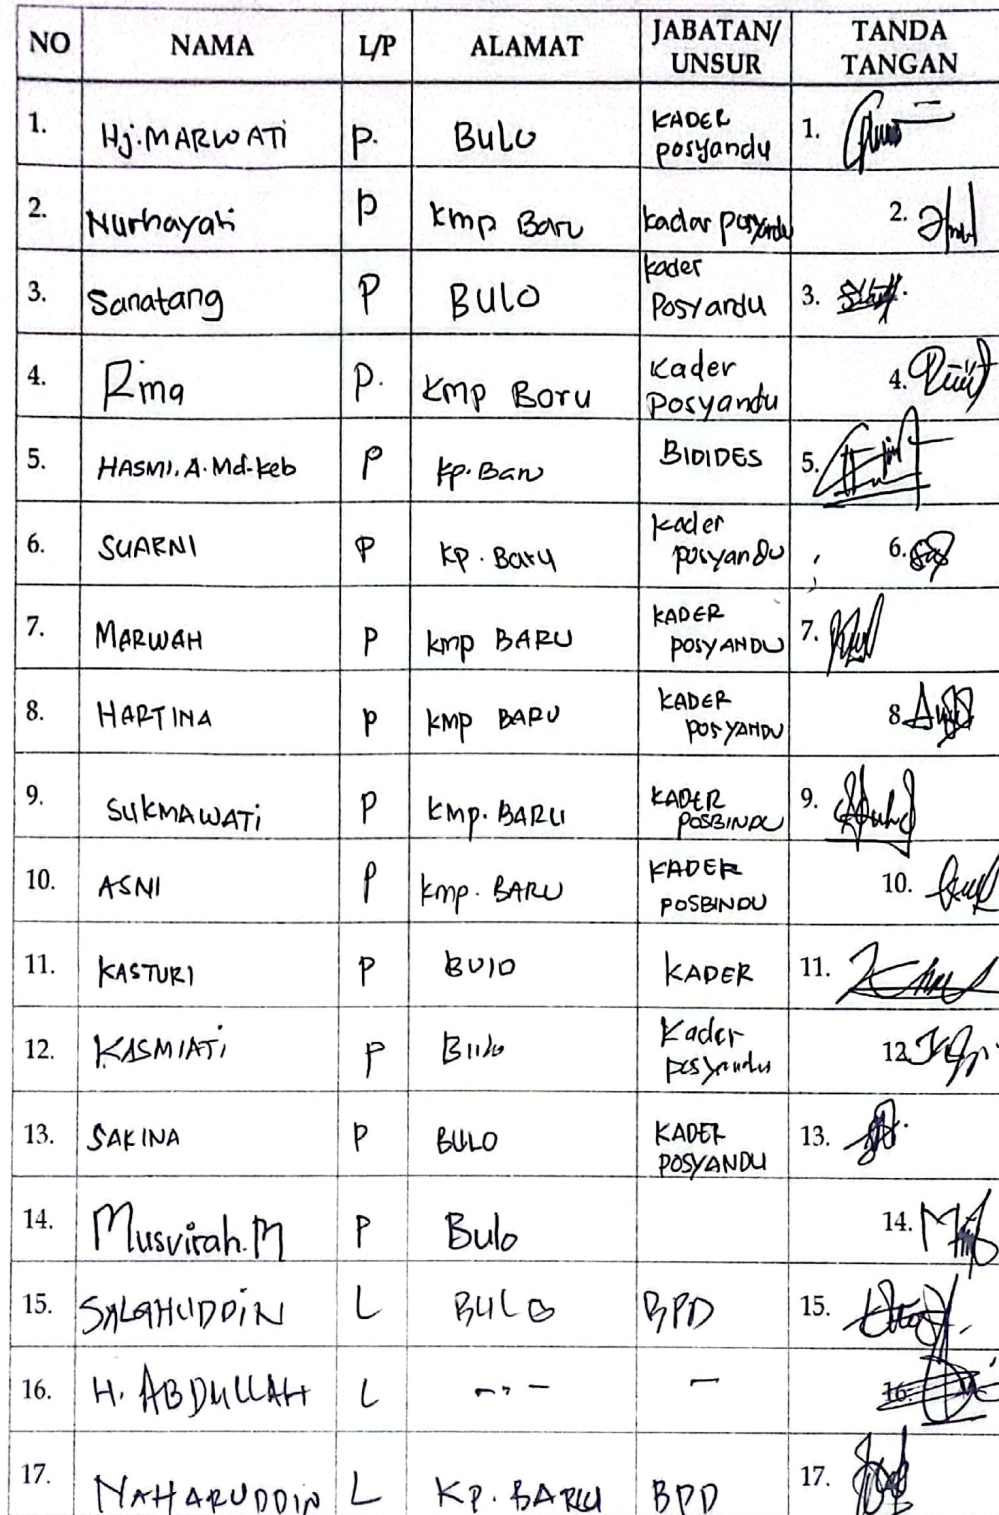 NO NAMA L/P ALAMAT JABATAN/ UNSUR TANDA TANGAN
1. Hj. MARWATi P. BULO KADER posyandu 1.
2. Nurhayati P kmp Baru kadar posyandu 2.
3. Sanatang P BULO kader Posyandu 3.
4. Rma P. kmp Boru Kader Posyandu 4.
5. HASMI. A. Md. keb P kp. Baru BIDIDES 5.
6. SUARNI P KP. Baru kader posyandu 6.
7. MARWAH P kmp BARU KADER POSYANDU 7.
8. HARTINA P KMP BARU KADER POSYANDU 8.
9. SUKMAWATi P KMP. BARU KADER POSBINDU 9.
10. ASNI P kmp. BARU KADER POSBINDU 10.
11. KASTURI P BULO KADER 11.
12. KASMIATi P Bulo Kader posyandu 12.
13. SAKINA P BULO KADER POSYANDU 13.
14. Musvirah. M P Bulo 14.
15. SALAHUDDiN L BULO BPD 15.
16. H. ABDULLAH L -"- - 16.
17. NAHARUDDIN L KP. BARU BPD 17.